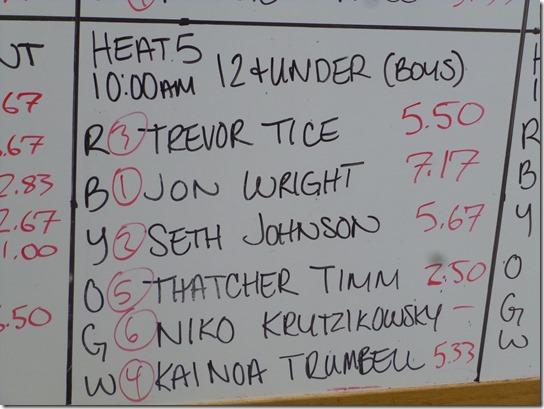 HEAT 5
10:00AM 12 & UNDER (BOYS)
R 3 TREVOR TICE 5.50
B 1 JON WRIGHT 7.17
Y 2 SETH JOHNSON 5.67
O 5 THATCHER TIMM 2.50
G 6 NIKO KRUTZIKOWSKY —
W 4 KAINOA TRUMBELL 5.33
UT
.67
.67
2.83
2.67
1.00
.50
H
1
R
B
Y
O
G
W